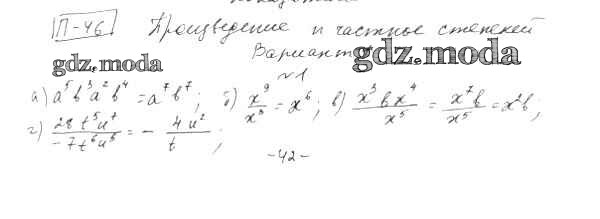 П-46 Произведение и частное степеней
Вариант
gdz.moda gdz.moda
№1
а) a⁵b³a²b⁴ = a⁷b⁷; б) x⁹/x³ = x⁶; в) x³bx⁴/x⁵ = x⁷b/x⁵ = x²b;
г) 28t⁵u⁷/-7t⁶u⁵ = - 4u²/t;
-42-